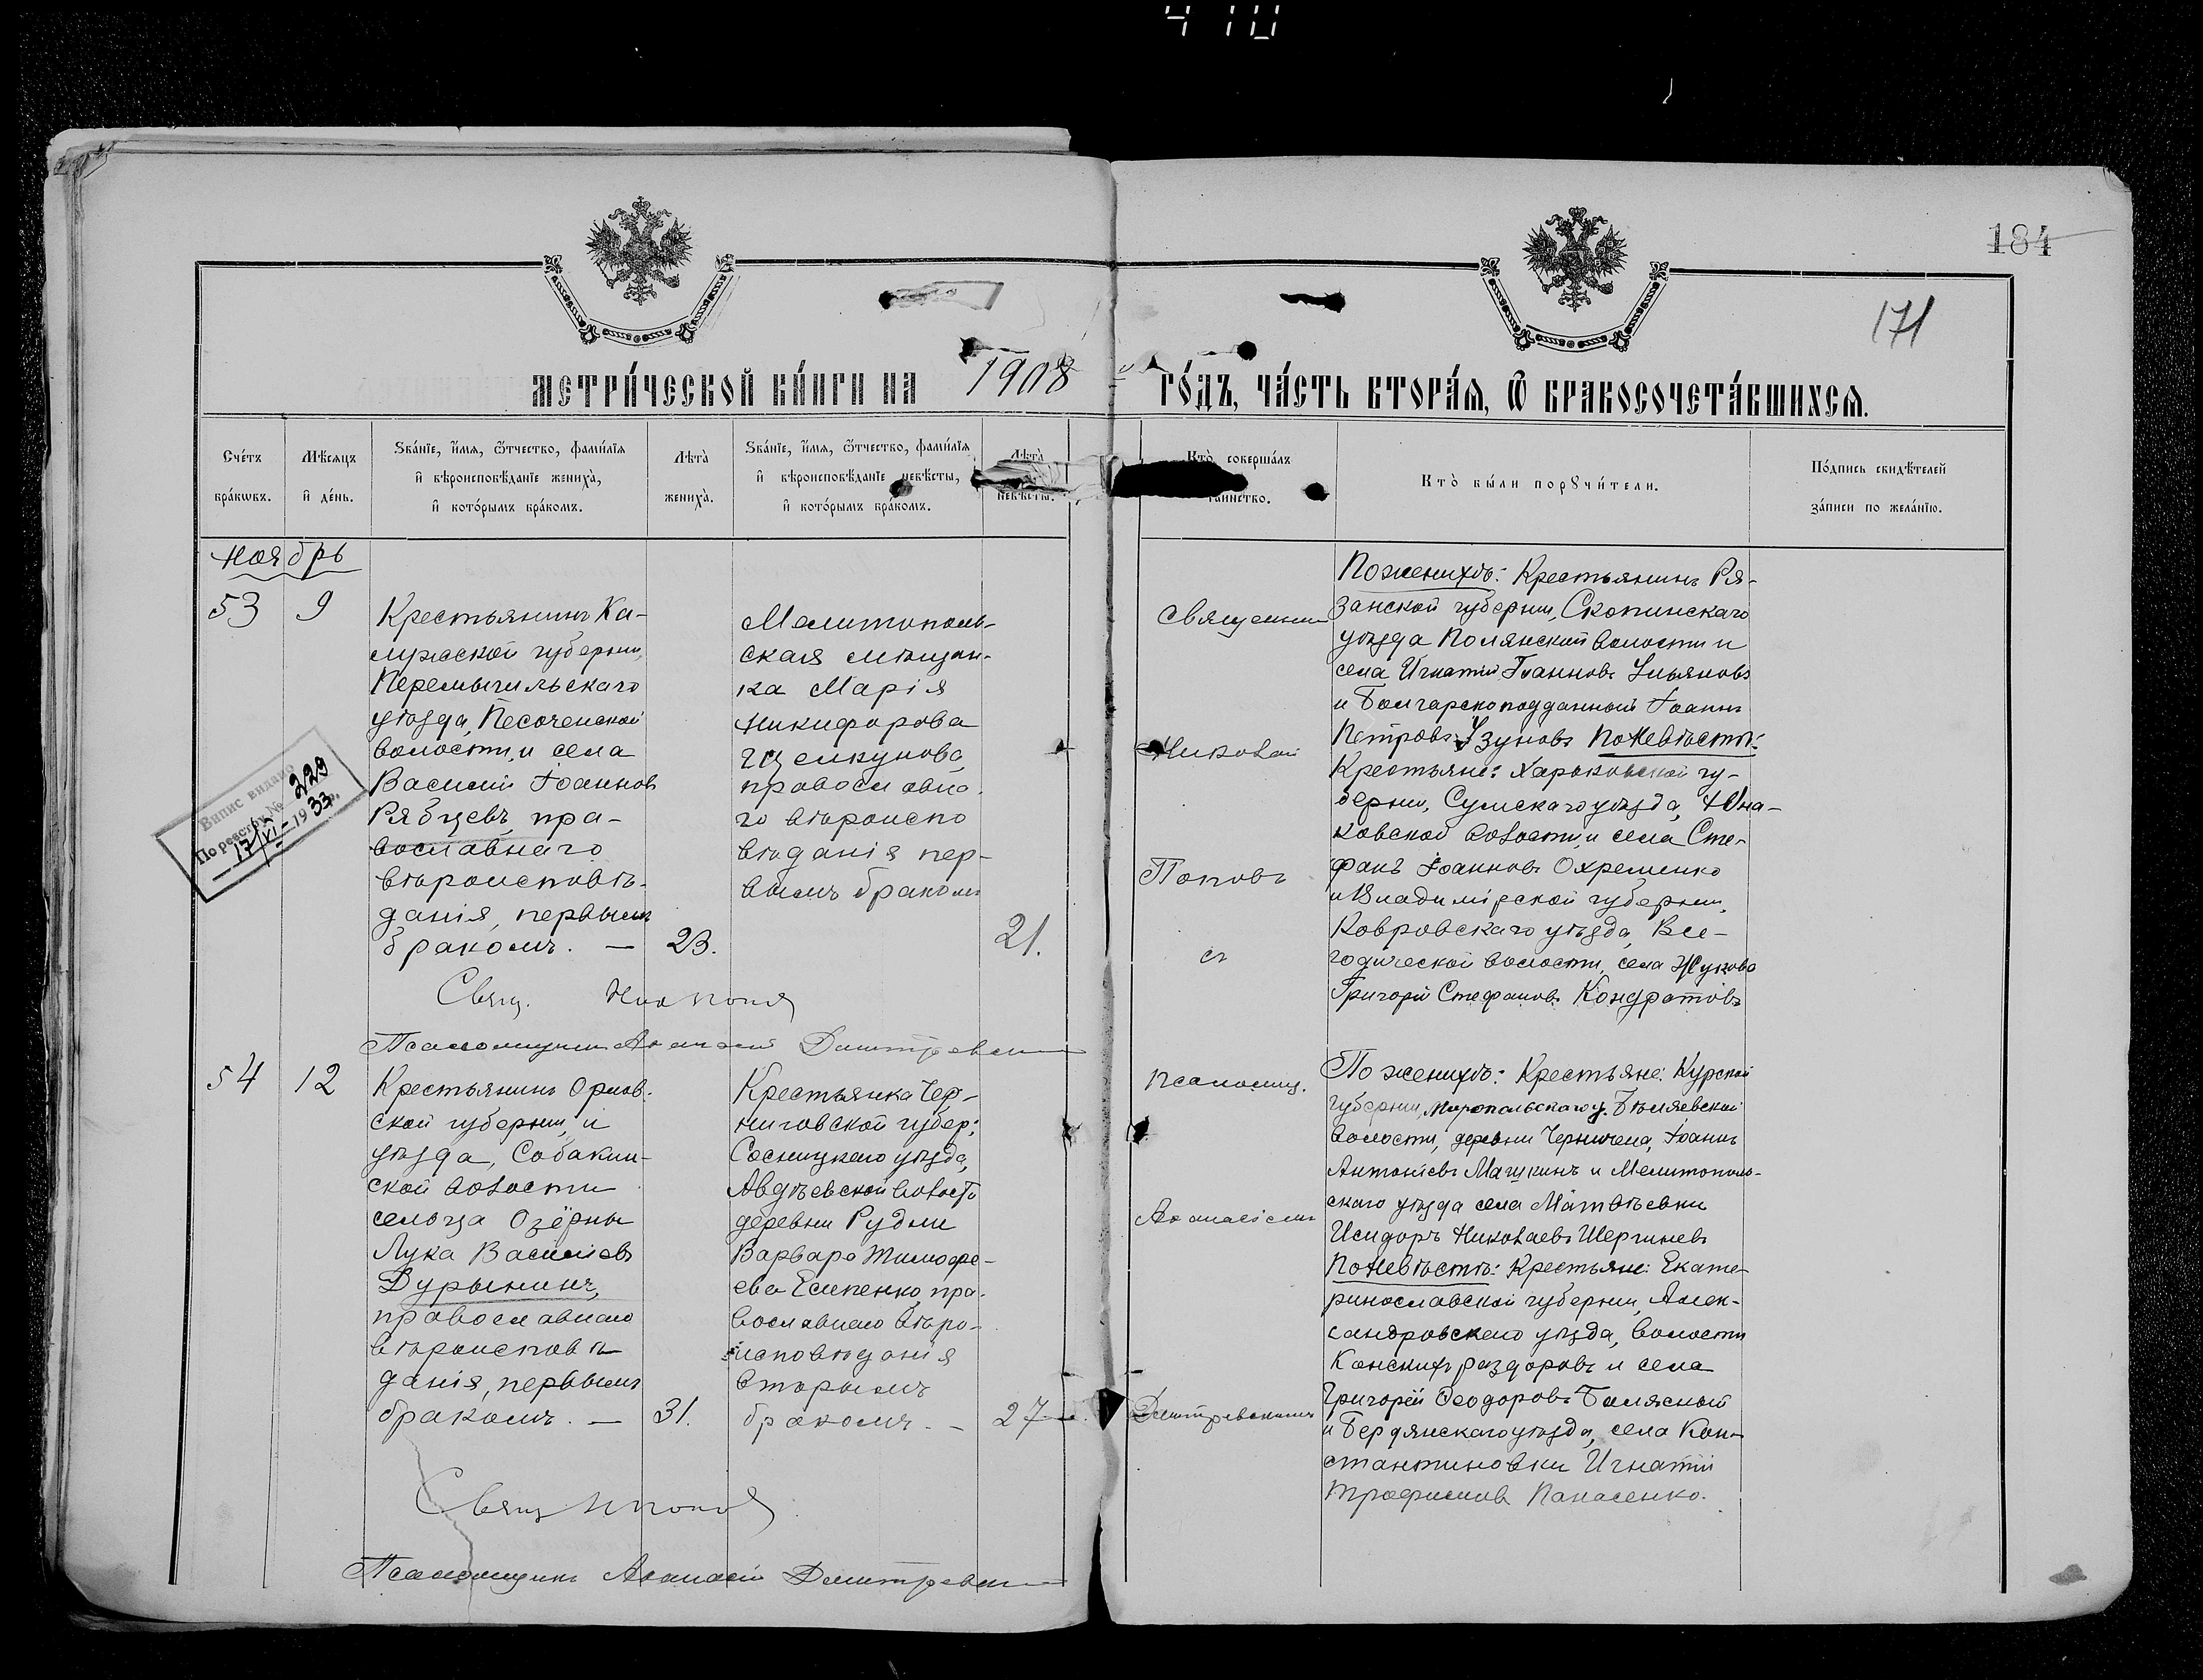 410
184
171
МЕТРИ́ЧЕСКОЙ КНИ́ГИ НА 1908 ГО́ДЪ, ЧА́СТЬ ВТОРА́Я, Ѿ БРАКОСОЧЕТА́ВШИХСЯ.
Сче́тъ бра́кѡвъ.
Мѣ́сяцъ и҆ де́нь.
Ѕва́нїе, и҆́мя, ѻ҆́тчество, фами́лїя
и҆ вѣроисповѣ́данїе жениха̀,
и҆ кото́рымъ бра́комъ.
Лѣта̀ жениха̀.
Ѕва́нїе, и҆́мя, ѻ҆́тчество, фами́лїя
и҆ вѣроисповѣ́данїе невѣ́сты,
и҆ кото́рымъ бра́комъ.
Лѣта̀ невѣ́сты.
Кто̀ соверша́лъ таинство.
Кто̀ бы́ли порꙋчи́тели.
По́дпись свидѣ́телей
за́писи по жела́нїю.
Ноябрь
53 9
Крестьянинъ Ка-
лужской губернии,
Перемышльскаго
уѣзда, Песоченской
волости, и села
Василий Іоанновъ
Рябцевъ, пра-
вославнаго
вѣроисповѣ-
данія, первымъ
бракомъ. — 23.
Мелитополь-
ская мѣщан-
ка Марія
Никифорова
православна-
го вѣроиспо
вѣданія пер-
вымъ бракомъ
21.
Священник
Николай
Поповъ
съ
По женихѣ: Крестьянинъ Ря-
занской губернии, Скопинскаго
уѣзда Полянской волости и
села Игнатий Іоанновъ Ульяновъ
и Болгарскоподданный Іоаннъ
Петровъ Узуновъ По невѣстѣ:
Крестьяне: Харьковской гу-
бернии, Сумскаго уѣзда, Юна-
ковской волости, и села Сте-
фанъ Іоанновъ Охременко
и Владимірской губернии,
Ковровскаго уѣзда, Все-
годической волости, села Жуково
Григорий Стефановъ Кондратовъ
Випис видано
По реєстру № 229
17/VI - 1933 р.
Свящ. Н Попов
Псаломщикъ Аѳанасій Димитревский
54 12
Крестьянинъ Орлов-
ской губернии, и
уѣзда, Собакин-
ской волости
сельца Озёрны
Лука Васильевъ
Дурынинъ,
православнаго
вѣроисповѣ
данія, первымъ
бракомъ. — 31.
Крестьянка Чер-
ниговской губер:
Сосницкаго уѣзда,
Авдѣевской волости
деревни Рудни
Варвара Тимофе-
ева Есипенко, пра-
вославнаго вѣро-
исповѣданія
вторымъ
бракомъ. — 27
Псаломщ.
Аѳанасіемъ
Димитревскимъ
По женихѣ: Крестьяне: Курской
губернии, Миропольскаго у. Бѣляевской
волости, деревни Іоаннъ
Антоніевъ Магикинъ и Мелитополь-
скаго уѣзда села Матвѣевки
Исидоръ Николаевъ Шергиневъ
По невѣстѣ: Крестьяне: Екате-
ринославской губернии, Алек-
сандровскаго уѣзда, волости
Конскихъ раздоровъ и села
Григорій Ѳеодоровъ Балясный
и Бердянскаго уѣзда, села Кон-
стантиновки Игнатій
Трофимовъ Панасенко.
Свящ Н Попов
Псаломщикъ Аѳанасій Димитревский